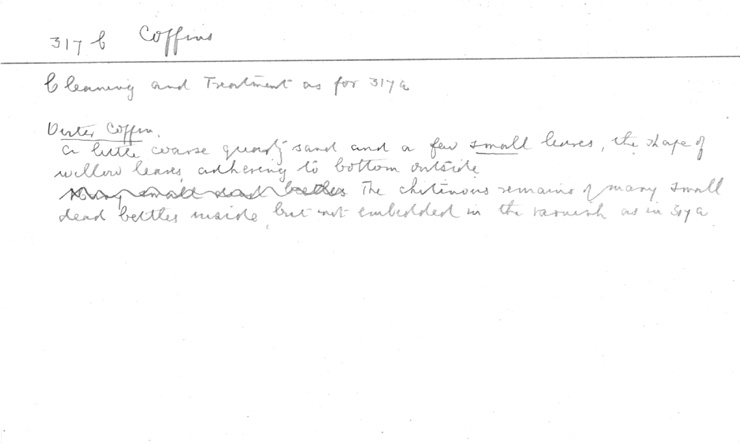 317 b Coffins
Cleaning and Treatment as for 317a
Outer Coffin.
A little coarse quartz sand and a few small leaves, the shape of
willow leaves, adhering to bottom outside
Many small dead beetles The chitinous remains of many small
dead beetles inside, but not embedded in the varnish as in 317a